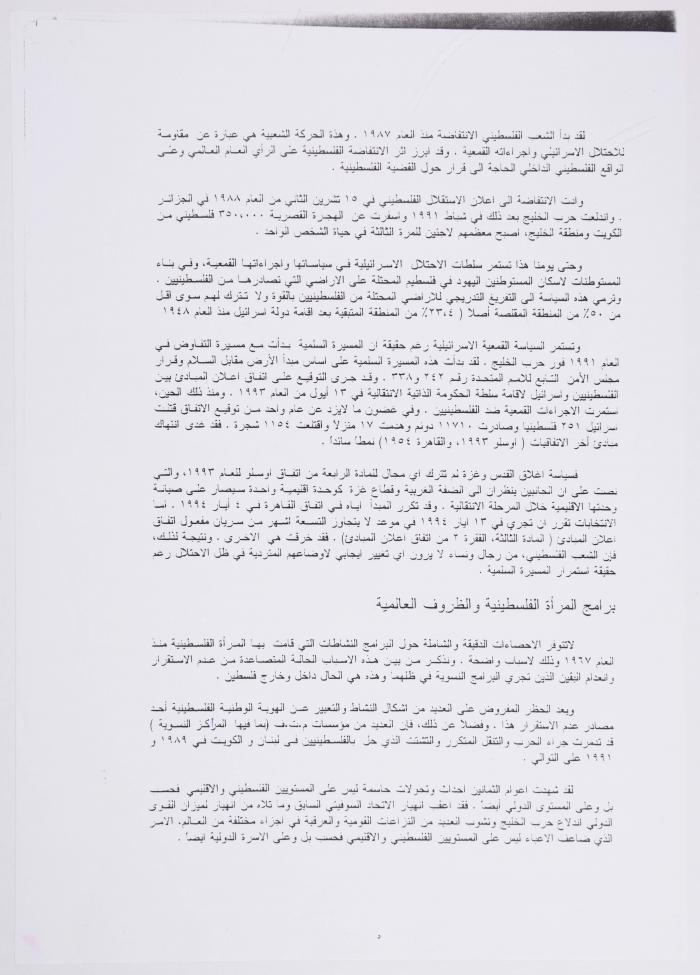 لقد بدأ الشعب الفلسطيني الانتفاضة منذ العام ١٩٨٧ . وهذة الحركة الشعبية هي عبارة عن مقاومة
للاحتلال الاسرائيلي واجراءاته القمعية . وقد ابرز اثر الانتفاضة الفلسطينية على الرأي العام العالمي وعلى
الواقع الفلسطيني الداخلي الحاجة الى قرار حول القضية الفلسطينية .
وادت الانتفاضة الى اعلان الاستقلال الفلسطيني في ١٥ تشرين الثاني من العام ١٩٨٨ في الجزائر
. واندلعت حرب الخليج بعد ذلك في شباط ١٩٩١ واسفرت عن الهجرة القصرية ٣٥٠,٠٠٠ فلسطيني من
الكويت ومنطقة الخليج، أصبح معظمهم لاجئين للمرة الثالثة في حياة الشخص الواحد .
وحتى يومنا هذا تستمر سلطات الاحتلال الاسرائيلية في سياساتها واجراءاتها القمعية، وفي بناء
المستوطنات لاسكان المستوطنين اليهود في فلسطيم المحتلة على الاراضي التي تصادرها من الفلسطينيين .
وترمي هذه السياسة الى التفريغ التدريجي للاراضي المحتلة من الفلسطينيين بالقوة ولا تترك لهم سوى اقل
من ٥٠٪ من المنطقة المقلصة أصلا ( ٢٣,٤٪ من المنطقة المتبقية بعد اقامة دولة اسرائيل منذ العام ١٩٤٨
وتستمر السياسة القمعية الاسرائيلية رغم حقيقة ان المسيرة السلمية بدأت مع مسيرة التفاوض في
العام ١٩٩١ فور حرب الخليج . لقد بدأت هذه المسيرة السلمية على اساس مبدأ الأرض مقابل السلام وقرار
مجلس الأمن التابع للامم المتحدة رقم ٢٤٢ و ٣٣٨. وقد جرى التوقيع على اتفاق اعلان المبادئ بين
الفلسطينيين واسرائيل لاقامة سلطة الحكومة الذاتية الانتقالية في ١٣ أيلول من العام ١٩٩٣ . ومنذ ذلك الحين،
استمرت الاجراءات القمعية ضد الفلسطينيين . وفي غضون ما لايزد عن عام واحد من توقيع الاتفاق قتلت
سرائيل ٢٥١ فلسطينيا وصادرت ١١٧١٠ دونم وهدمت ١٧ منزلاً واقتلعت ١١٥٤ شجرة . فقد غدى انتهاك
مبادئ أخر الاتفاقيات ( اوسلو ١٩٩٣، والقاهرة ١٩٥٤) نمطاً سائداً .
فسياسة اغلاق القدس وغزة لم تترك اي مجال للمادة الرابعة من اتفاق اوسلو للعام ١٩٩٣، والتي
نصت على ان الجانبين ينظران الى الضفة الغربية وقطاع غزة كوحدة اقليمية واحدة سيصار على صيانة
وحدتها الاقليمية خلال المرحلة الانتقالية . وقد تكرر المبدأ اياه في اتفاق القاهرة في ٤ أيار ١٩٩٤ . اما
الانتخابات تقرر ان تجري في ١٣ ايار ١٩٩٤ في موعد لا يتجاوز التسعة اشهر من سريان مفعول اتفاق
اعلان المبادئ ( المادة الثالثة، الفقرة ٢ من اتفاق اعلان المبادئ) . فقد خرقت هي الاخرى . ونتيجة لذلك،
فإن الشعب الفلسطيني، من رجال ونساء لا يرون اي تغيير ايجابي لاوضاعهم المتردية في ظل الاحتلال رغم
حقيقة استمرار المسيرة السلمية .
برامج المرأة الفلسطينية والظروف العالمية
لاتتوفر الاحصاءات الدقيقة والشاملة حول البرامج النشاطات التي قامت بها المرأة الفلسطينية منذ
العام ١٩٦٧ وذلك لاسباب واضحة . ونذكر من بين هذه الاسباب الحالة المتصاعدة من عدم الاستقرار
وانعدام اليقين الذين تجري البرامج النسوية في ظلهما وهذه هي الحال داخل وخارج فلسطين .
ويعد الحظر المفروض على العديد من اشكال النشاط والتعبير عن الهوية الوطنية الفلسطينية أحد
مصادر عدم الاستقرار هذا . وفضلا عن ذلك، فإن العديد من مؤسسات م.ت.ف (بما فيها المراكز النسوية )
قد تدمرت جراء الحرب والتنقل المتكرر والتشتت الذي حل بالفلسطينيين في لبنان و الكويت في ١٩٨٩ و
١٩٩١ على التوالي .
لقد شهدت اعوام الثمانين احداث وتحولات حاسمة ليس على المستويين الفلسطيني والاقليمي فحسب
بل وعلى المستوى الدولي أيضاً . فقد اعقب انهيار الاتحاد السوفيتي السابق وما تلاه من انهيار لميزان القوى
الدولي اندلاع حرب الخليج ونشوب العديد من النزاعات القومية والعرقية في اجزاء مختلفة من العالم، الامر
الذي ضاعف الاعباء ليس على المستويين الفلسطيني والاقليمي فحسب بل وعلى الاسرة الدولية ايضاً .